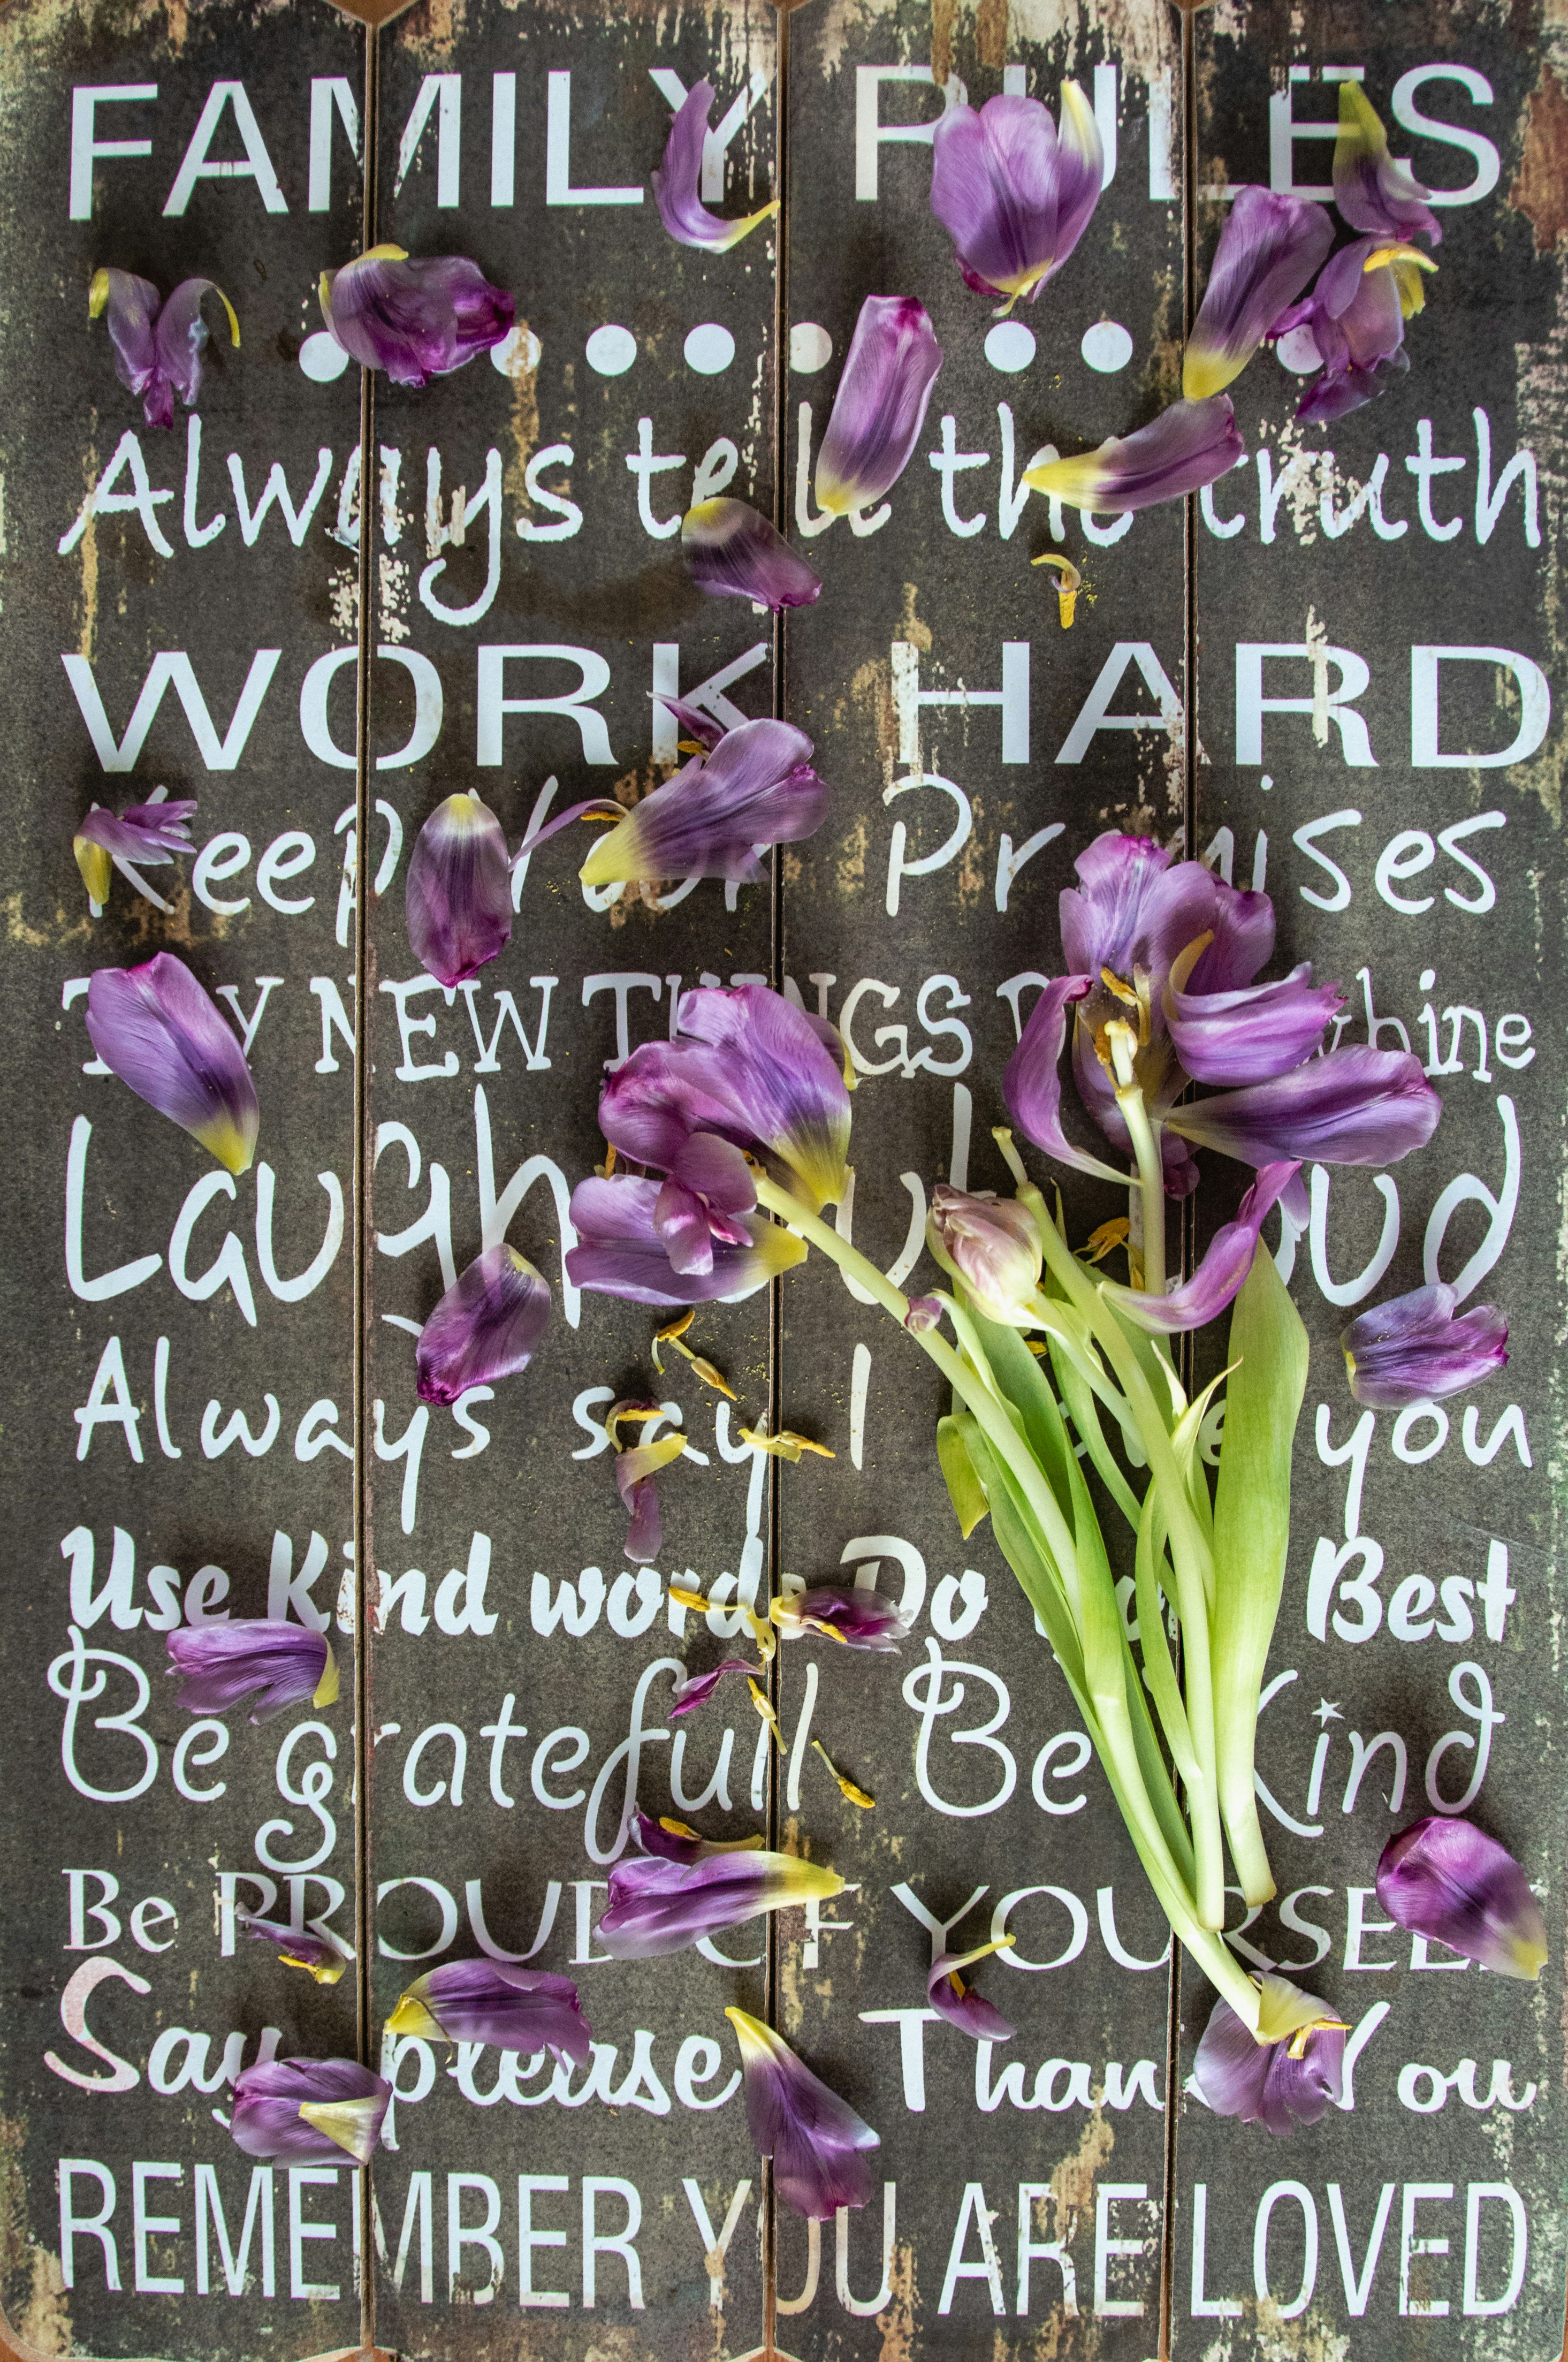 FAMILY RULES
Always tell the truth
WORK HARD
Keep Your Promises
TRY NEW THINGS whine
Laugh Out Loud
Always say I you
Use Kind words Do Best
Be gratefull Be Kind
Be PROUD OF YOURSELF
Say please Thank You
REMEMBER YOU ARE LOVED